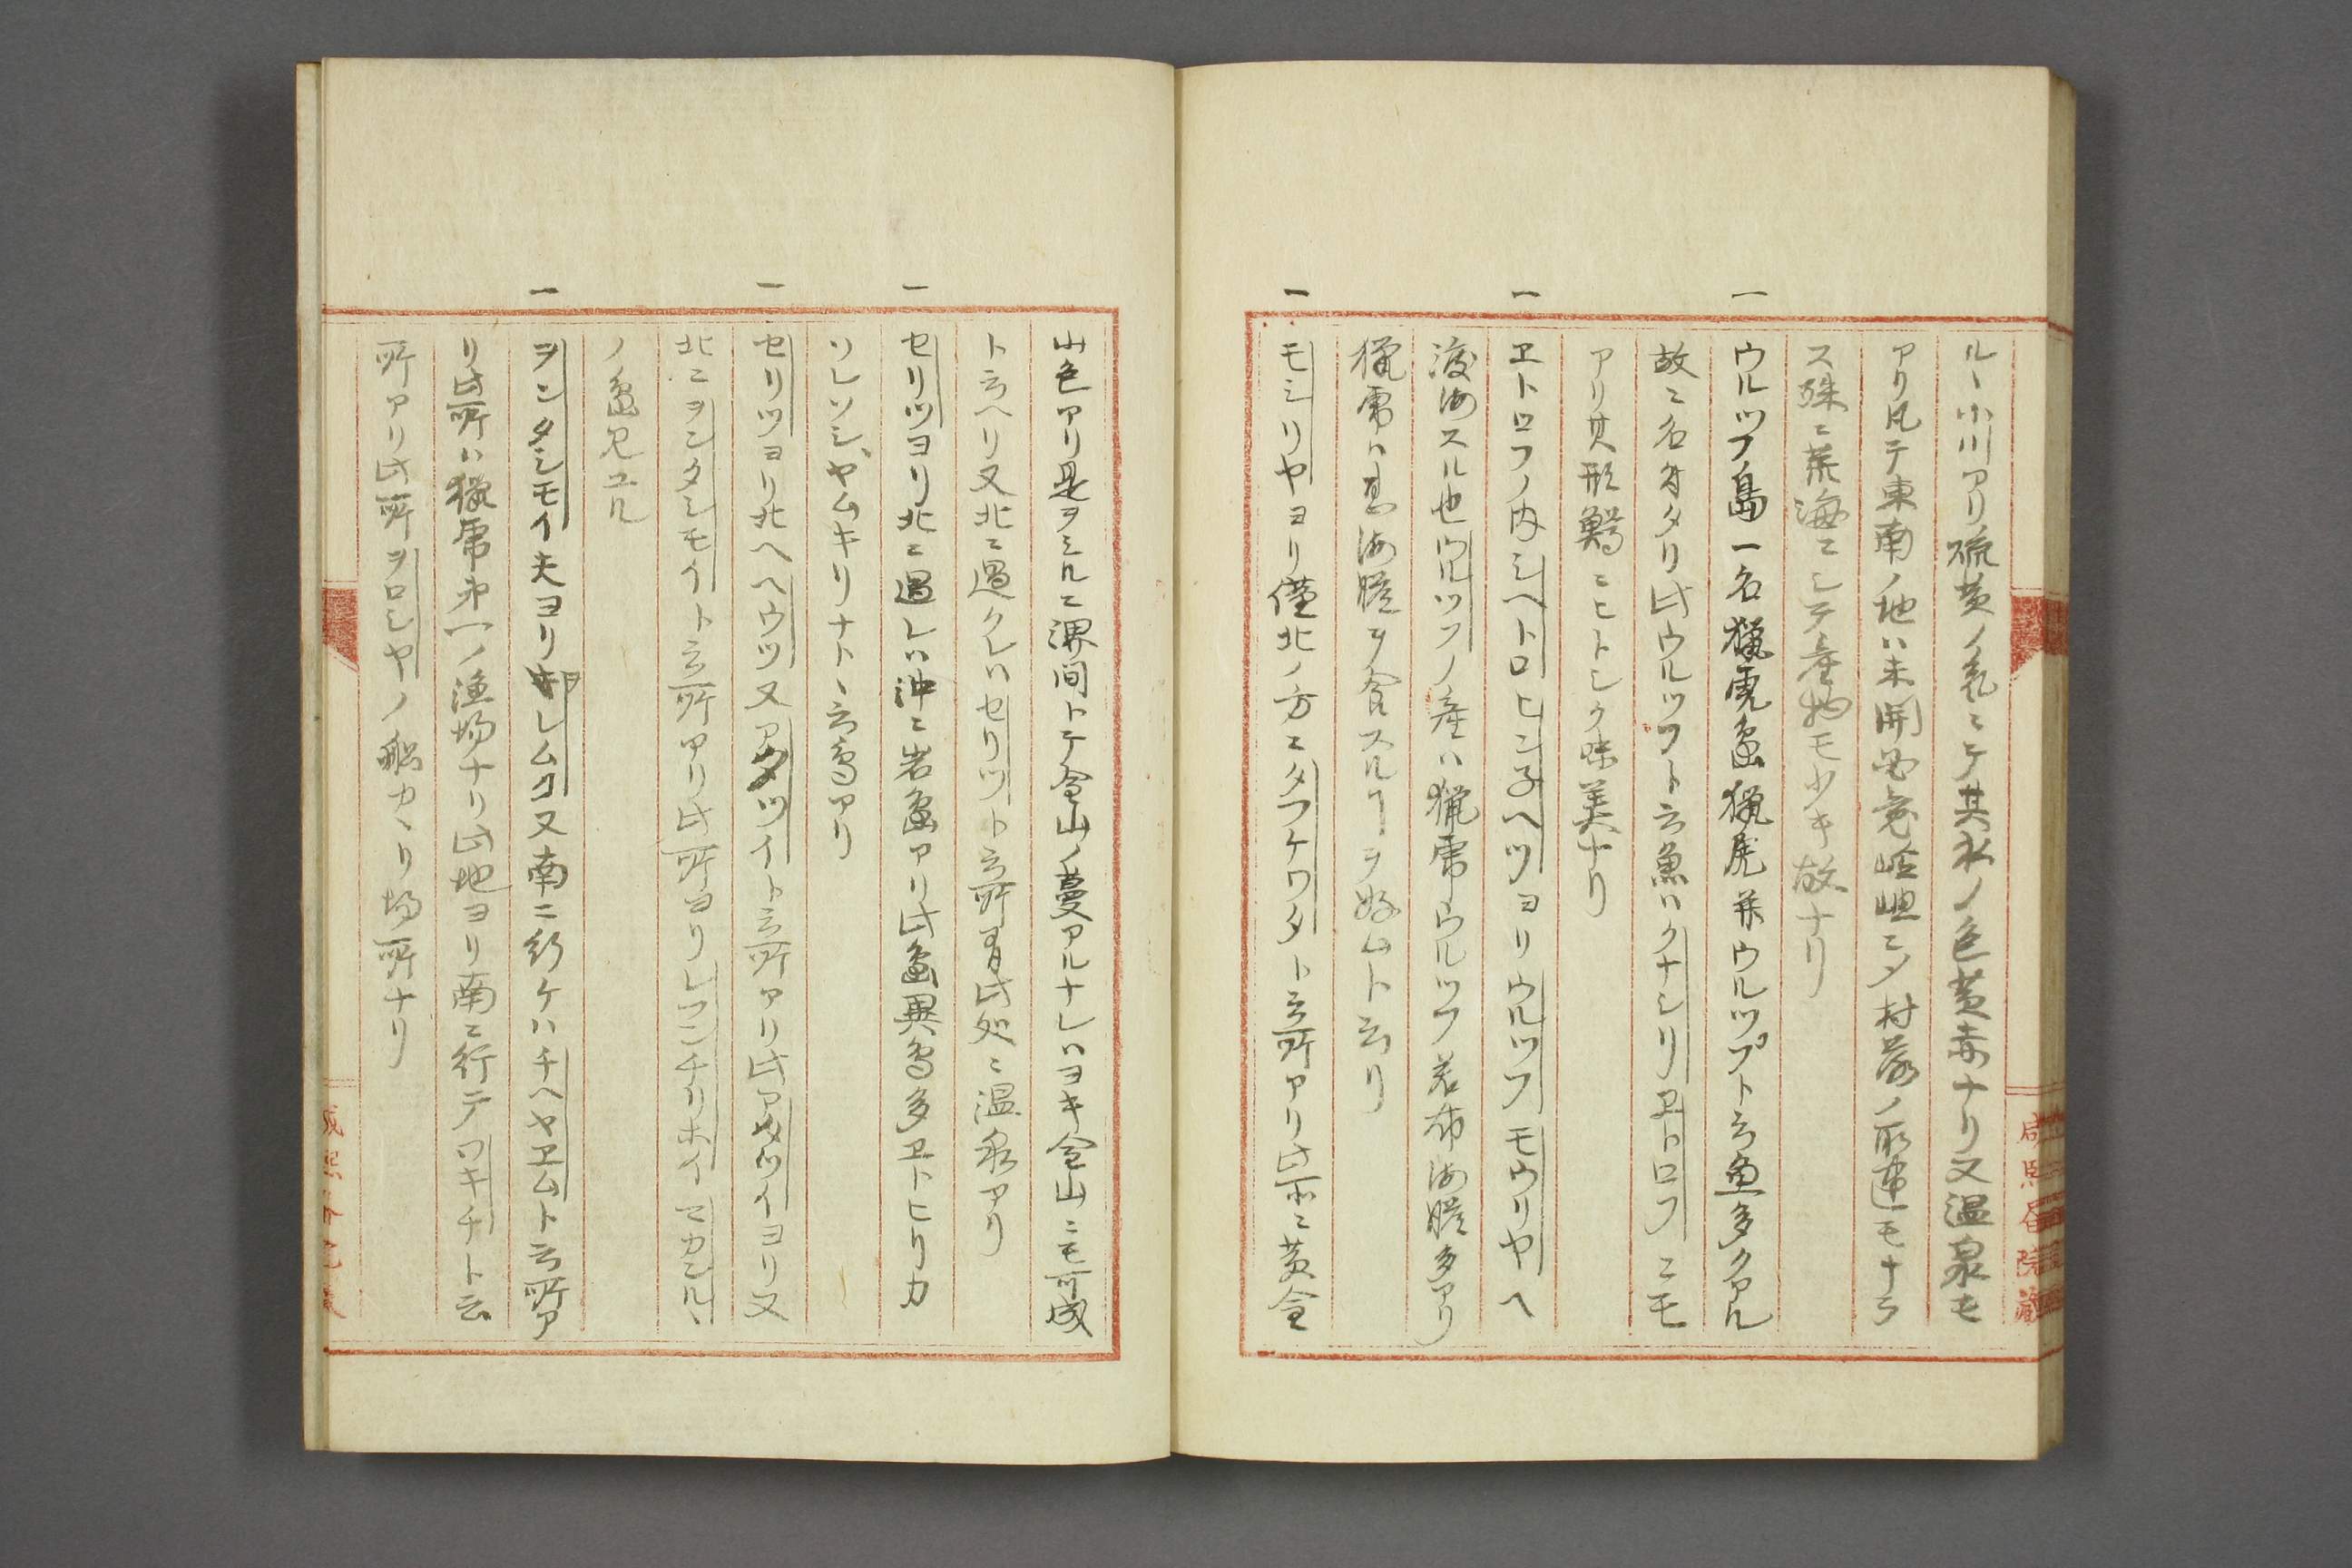 ルヽ小川アリ硫黄ノ気ニテ其水ノ色黄赤ナリ又温泉モ
アリ凡テ東南ノ地ハ未開ニノ村落ノ所モナラ
ス殊ニ荒海ニシテ産物モ少キ故ナリ
一 ウルツフ島一名猟虎島猟虎并ウルツプト云魚多クアル
故ニ名付タリ此ウルツフト云魚ハクナシリヱトロフニモ
アリ其形鱒ニヒトシク味美ナリ
一 ヱトロフノ内シヘトロヒン子ヘツヨリウルツフモウリヤヘ
渡海スル也ウルツフノ産ハ猟虎ウルツフ若布海膽多アリ
猟虎ハ甚海膽ヲ食スルヿヲ好ムト云リ
一 モシリヤヨリ僅北ノ方ニタフケワタト云所アリ此所ニ黄金
山色アリ是ヲミルニ澗間トテ金山ノ蔓アルナレハヨキ金山ニモ可成
ト云ヘリ又北ニ過クレハセリツト云所有此処ニ温泉アリ
一 セリツヨリ北ニ過レハ沖ニ岩島アリ此島異鳥多ヱトヒリカ
ソレソシヤムキリナトヽ云鳥アリ
一 セリツヨリ北ヘヘウツ又アタツイト云所アリ此アタツイヨリ又
北ニヲンタシモイト云所アリ此所ヨリレフンチリホイマカンルヽ
ノ島見ユル
一 ヲンタシモイ夫ヨリヲレムコ又南ニ行ケハチヘヤヱムト云所ア
リ此所ハ猟虎第一ノ漁場ナリ此地ヨリ南ニ行テワキチト云
所アリ此所ヲロシヤノ船カヽリ場所ナリ